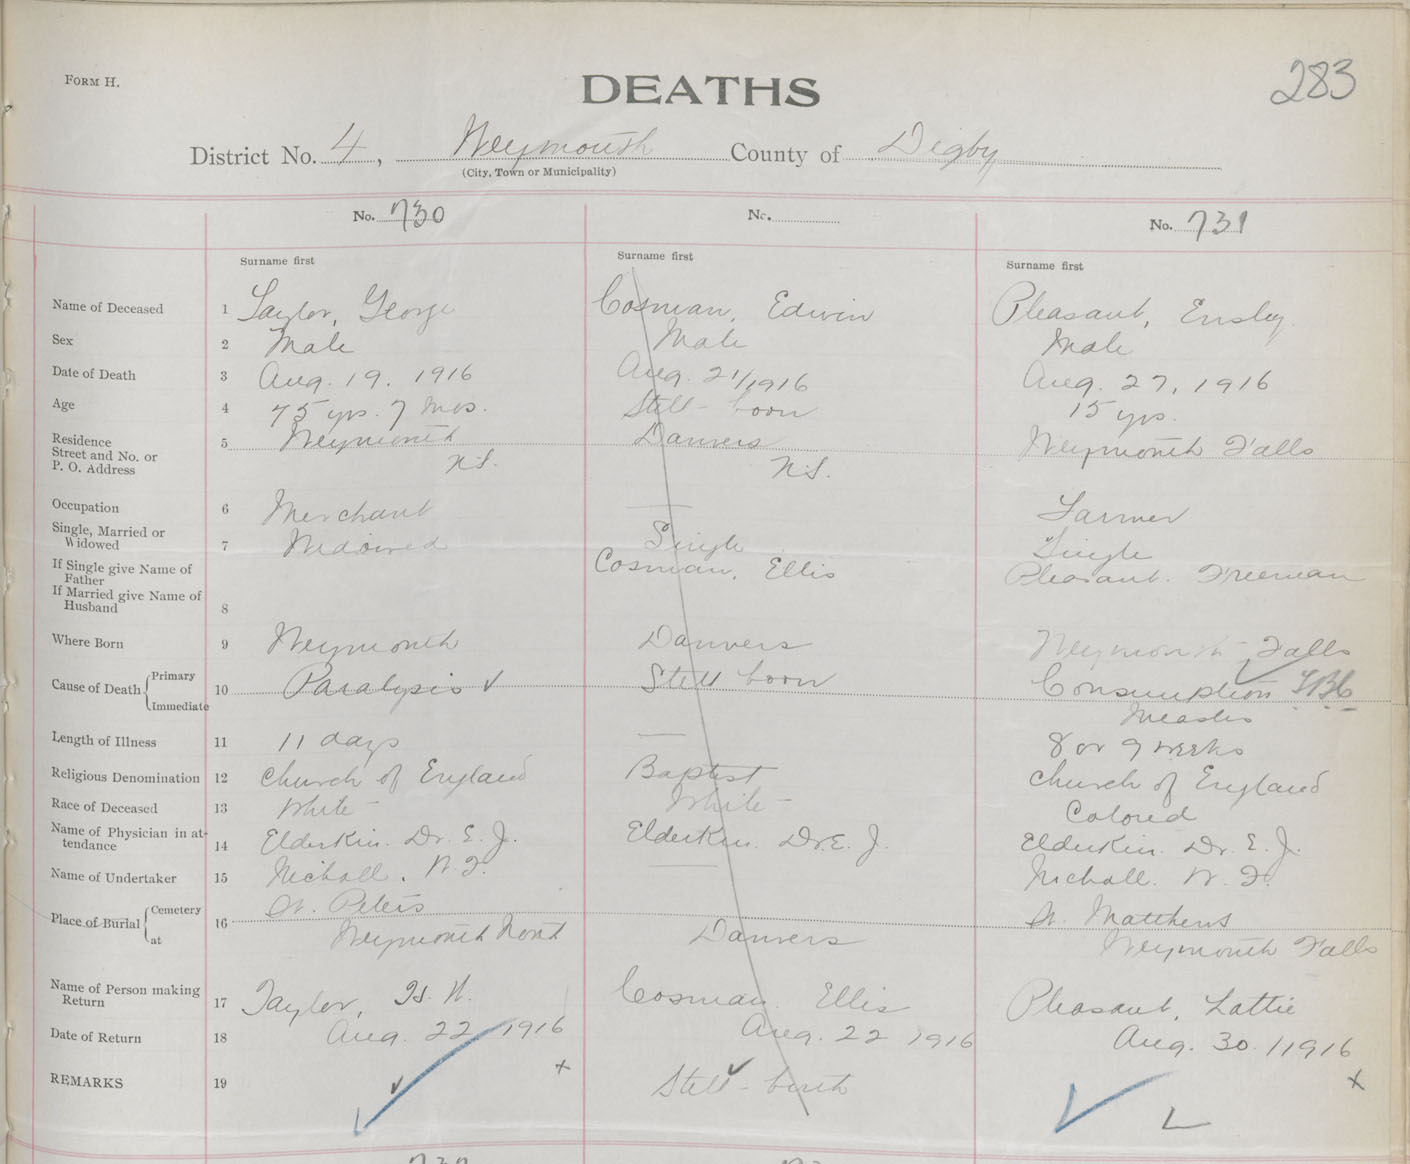 FORM H.
DEATHS
283
District No. 4, Weymouth County of Digby
(City, Town or Municipality)
No. 730 No. No. 731
Surname first Surname first Surname first
Name of Deceased 1 Taylor, George Cosman, Edwin Pleasant, Ensley
Sex 2 Male Male Male
Date of Death 3 Aug. 19. 1916 Aug. 21/1916 Aug. 27, 1916
Age 4 75 yrs. 7 Mos. Still-born 15 yrs.
Residence 5 Weymouth Danvers Weymouth Falls
Street and No. or
P. O. Address N.S. N.S.
Occupation 6 Merchant — Farmer
Single, Married or
Widowed 7 Widowed Single Single
If Single give Name of
Father Cosman, Ellis Pleasant. Freeman
If Married give Name of
Husband 8
Where Born 9 Weymouth Danvers Weymouth Falls
Cause of Death Primary
10 Paralysis Still born Consumption TBC
Immediate Measles
Length of Illness 11 11 days — 8 or 9 weeks
Religious Denomination 12 Church of England Baptist Church of England
Race of Deceased 13 White White Colored
Name of Physician in at-
tendance 14 Elderkin. Dr. E. J. Elderkin. Dr. E. J. Elderkin. Dr. E. J.
Name of Undertaker 15 Nicholl. W. F. — Nicholl. W. F.
Place of Burial Cemetery 16 St. Peters St. Matthews
at Weymouth North Danvers Weymouth Falls
Name of Person making
Return 17 Taylor, H. W. Cosman. Ellis Pleasant, Lottie
Date of Return 18 Aug. 22 1916 Aug. 22 1916 Aug. 30. 1916
REMARKS 19 x Still-birth x